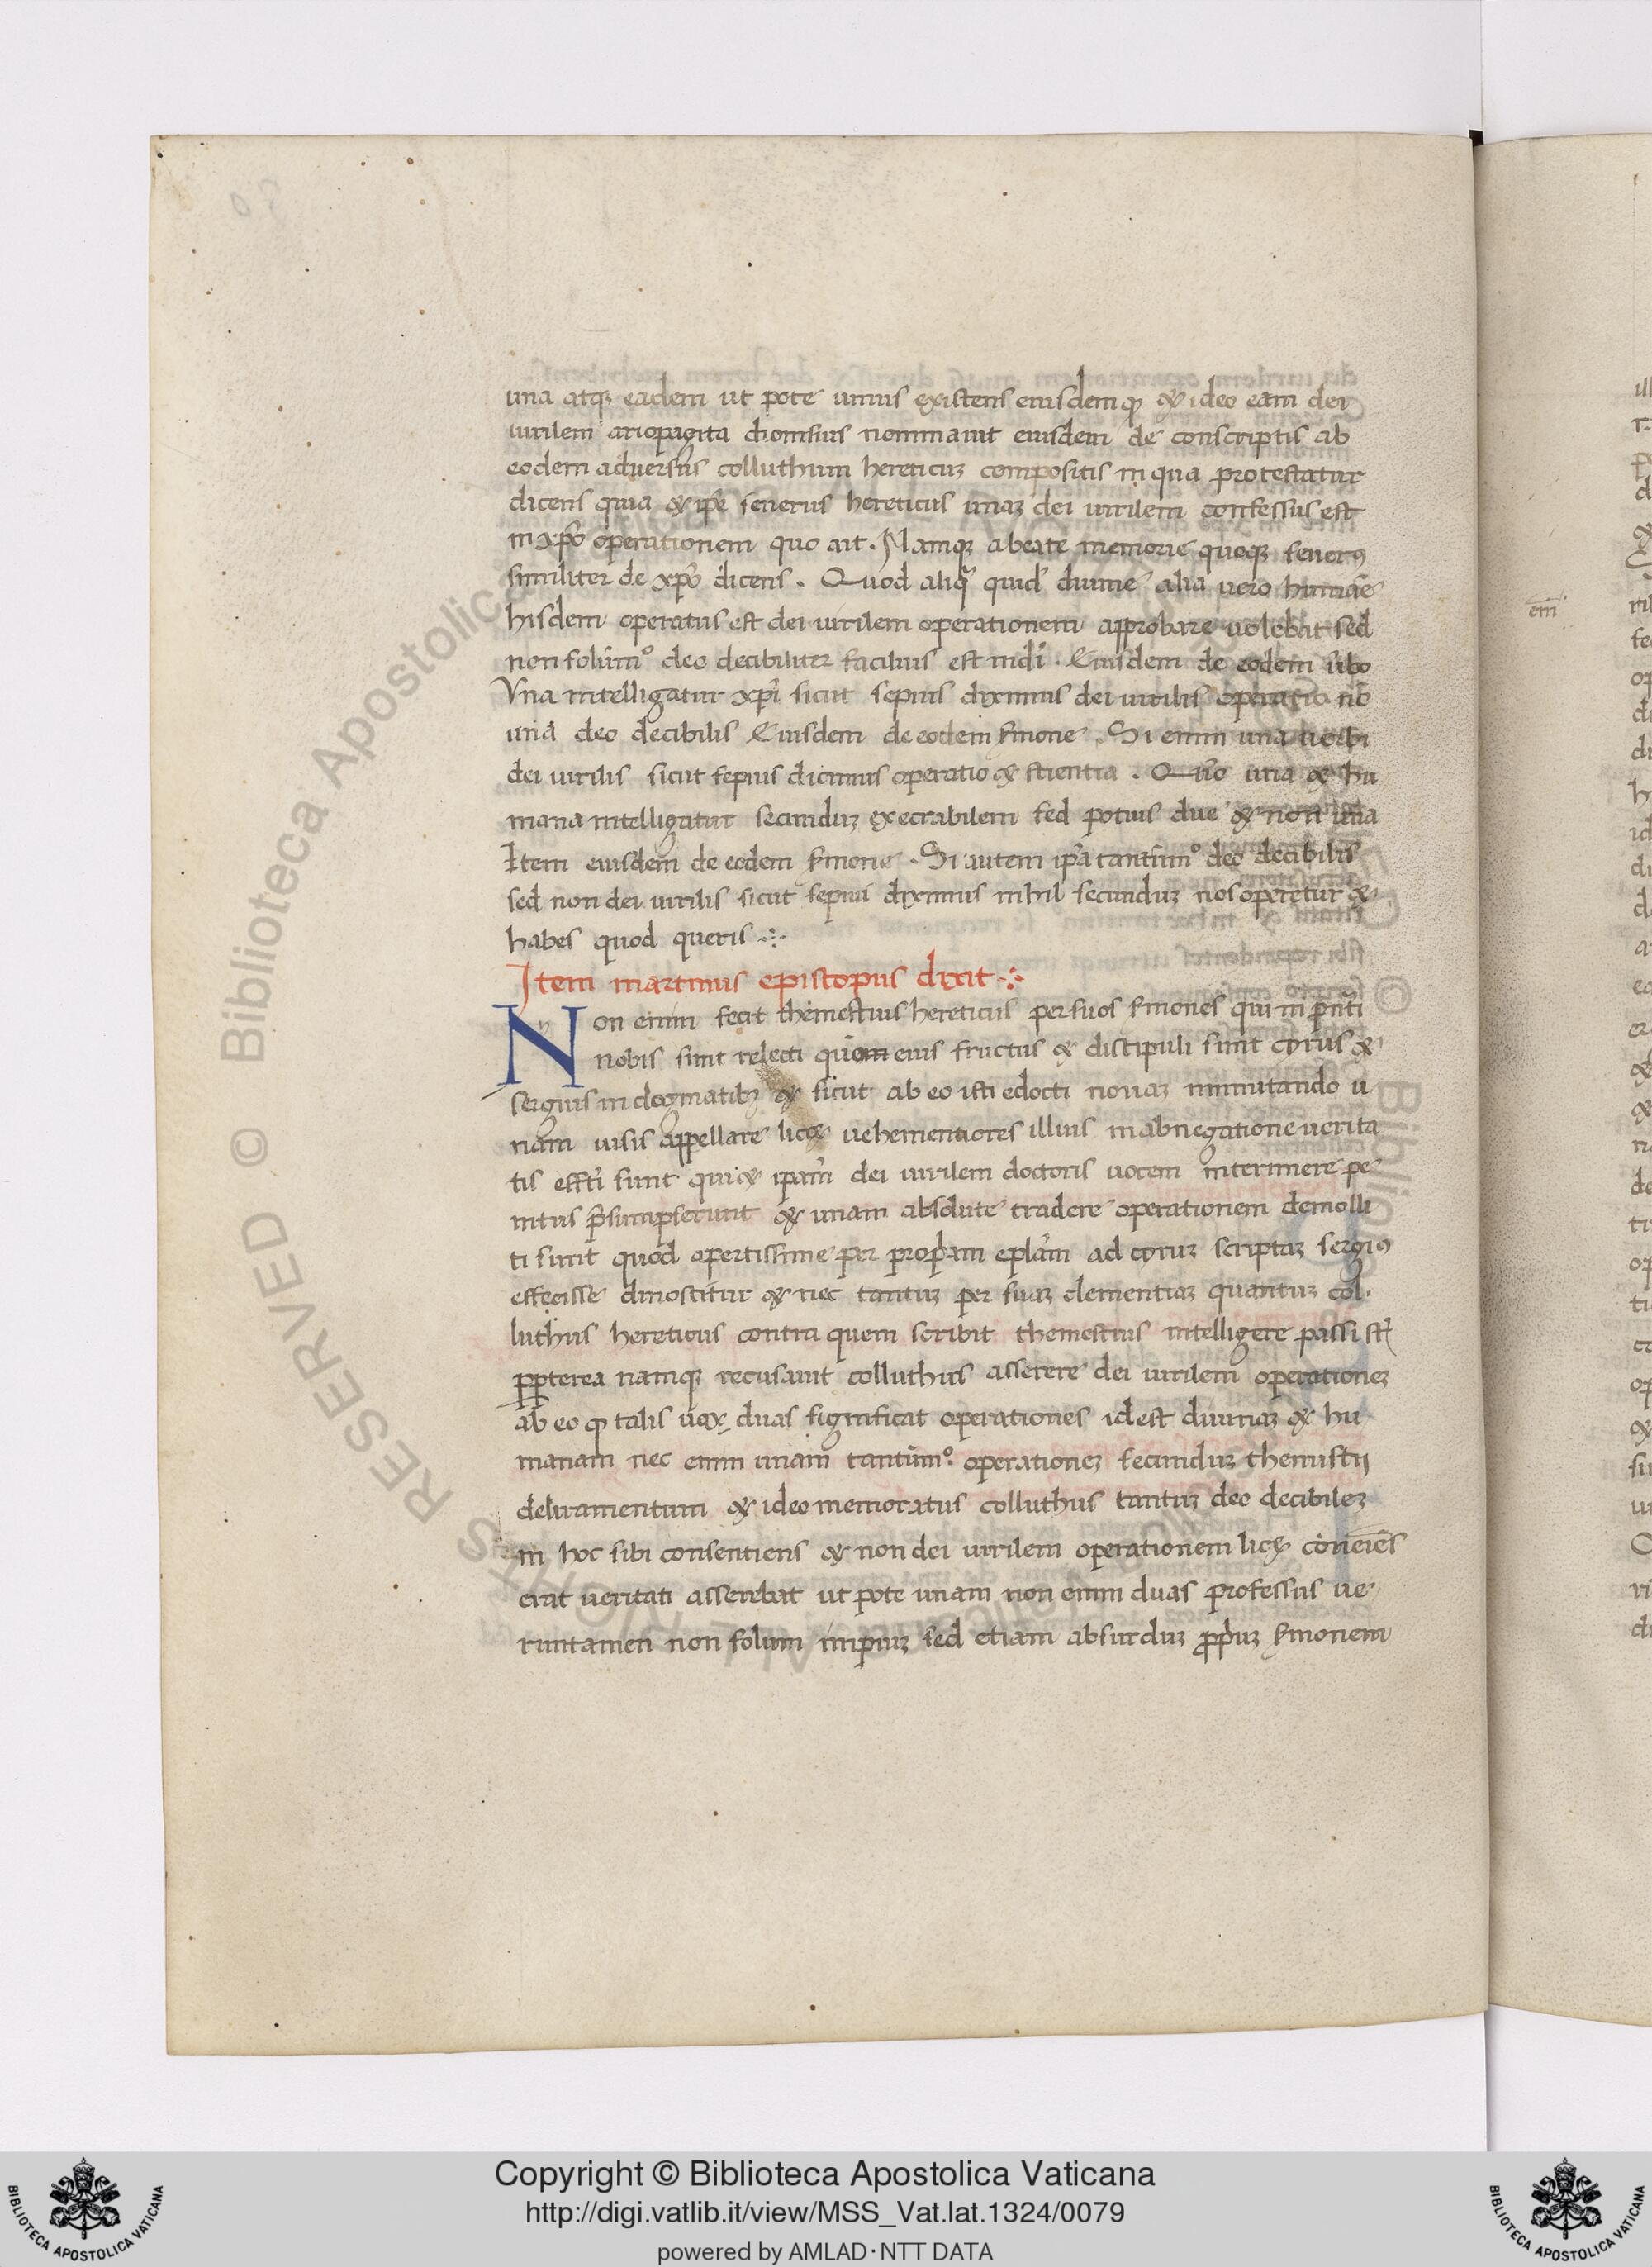 una atqꝫ eadem ut pote unius existens eiusdemqꝫ & ideo eam dei
uirilem ariopagita dionisius nominauit eiusdem de conscriptis ab
eodem aduersus colluthum hereticuꝫ compositis in qua protestatur
dicens quia & ip̃e seuerus hereticus unaꝫ dei uirilem confessus est
in xp̃o operationem quo ait. Namqꝫ a beate memorie quoqꝫ seuerꝰ
similiter de xp̃o dicens. Quod aliq̃ quid diuine alia uero humane
hisdem operatus est dei uirilem operationem approbare uolebat sed
non solũmº deo decibiliter facilius est uidi. Eiusdem de eodem ũbo
Vna intelligatur xp̃i sicut sepius diximus dei uirilis operatio nõ
una deo decibilis Eiusdem de eodem s̃mone. Si enim una uerbi
dei uirilis sicut sepius dicimus operatio & scientia. Quõ una & hu
mana intelligatur secunduꝫ execrabilem sed potius due & non una
Item eiusdem de eodem s̃mone. Si autem ip̃a tantũmº deo decibilis
sed non dei uirilis sicut sepius diximus nihil secunduꝫ nos operetur &
habes quod queris
Item martinus episcopus dixit
Non enim fecit themestius hereticus per suos s̃mones qui in p̃nti
nobis sunt relecti quom eius fructus & discipuli sunt cyrus &
sergius in dogmatibꝫ & sicut ab eo isti edocti nouaꝫ inmutando u
nam uisis appellare lic& uehementiores illius in abnegatione uerita
tis effcti sunt qui & ipam̃ dei uirilem doctoris uocem interimere pe
nitus p̃sumpserunt & unam absolute tradere operationem demolli
ti sunt quod apertissime per propriam eplãm ad cyruꝫ scriptaꝫ sergiꝰ
effecisse dinoscitur & nec tantuꝫ per suaꝫ clementiaꝫ quantuꝫ col
luthus hereticus contra quem scribit themestius intelligere passi st̃
ꝓpterea namqꝫ recusauit colluthus asserere dei uirilem operationeꝫ
ab eo ꝙ talis uox duas significat operationes idest diuinaꝫ & hu
manam nec enim unam tantũmº operationeꝫ secunduꝫ themistij
deliramentum & ideo memoratus colluthus tantuꝫ deo decibileꝫ
in hoc sibi consentiens & non dei uirilem operationem lic& cõueniẽs
erat ueritati asserebat ut pote unam non enim duas professus ue
runtamen non solum impiuꝫ sed etiam absurduꝫ ꝓpriuꝫ s̃monem
em̃
Copyright © Biblioteca Apostolica Vaticana
http://digi.vatlib.it/view/MSS_Vat.lat.1324/0079
powered by AMLAD·NTT DATA
BIBLIOTECA APOSTOLICA VATICANA
BIBLIOTECA APOSTOLICA VATICANA